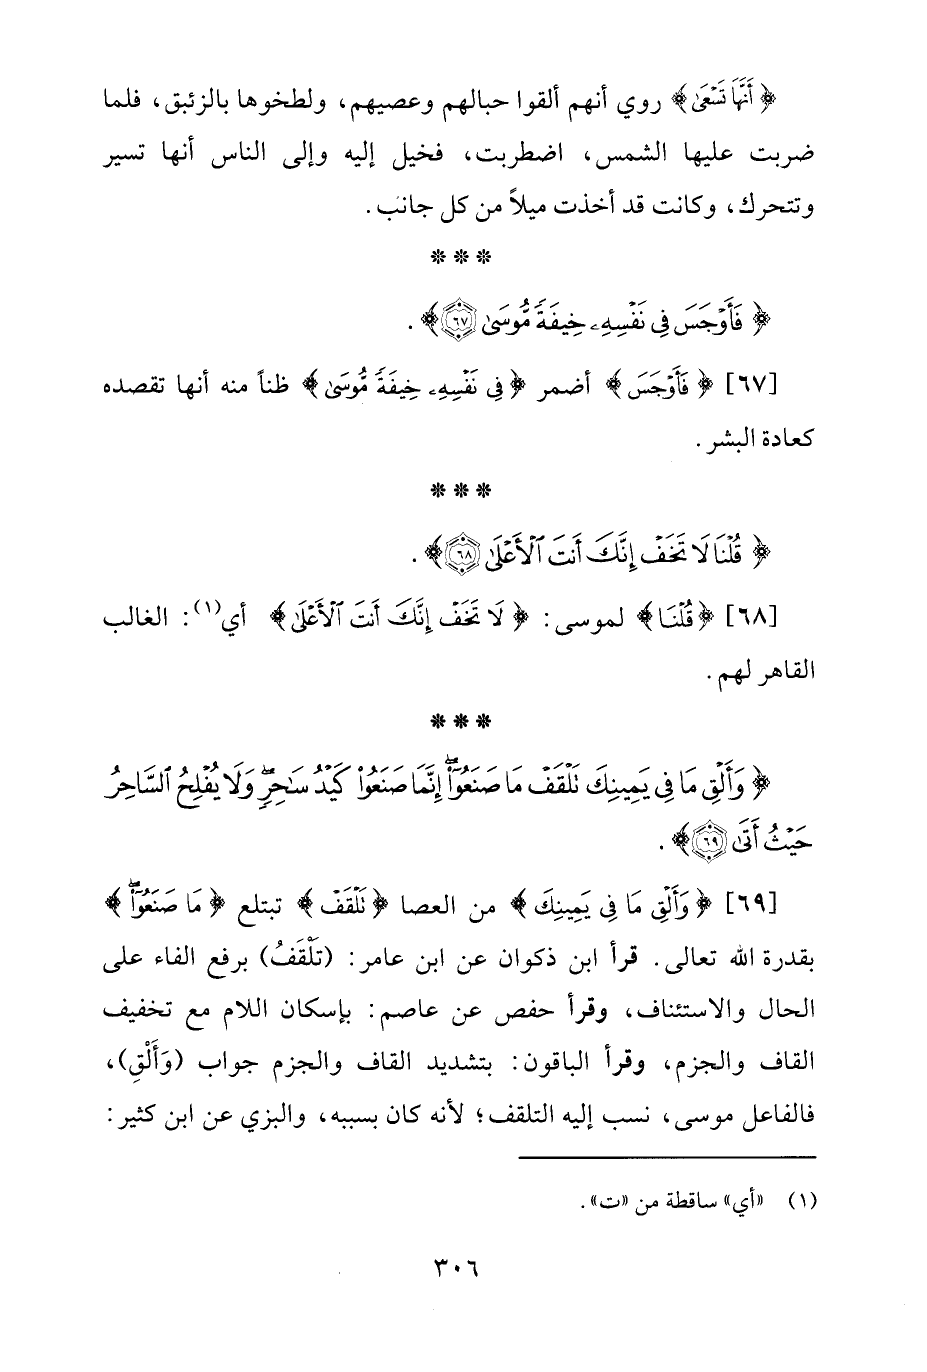 ﴿ أَنَّهَا تَسْعَىٰ﴾ روي أنهم ألقوا حبالهم وعصيهم، ولطخوها بالزئبق، فلما
ضربت عليها الشمس، اضطربت، فخيل إليه وإلى الناس أنها تسير
وتتحرك، وكانت قد أخذت ميلاً من كل جانب.
* * *
﴿ فَأَوْجَسَ فِي نَفْسِهِۦ خِيفَةً مُّوسَىٰ ٦٧﴾.
[٦٧] ﴿ فَأَوْجَسَ ﴾ أضمر ﴿ فِي نَفْسِهِۦ خِيفَةً مُّوسَىٰ ﴾ ظناً منه أنها تقصده
كعادة البشر.
* * *
﴿ قُلْنَا لَا تَخَفْ إِنَّكَ أَنتَ ٱلْأَعْلَىٰ ٦٨﴾.
[٦٨] ﴿قُلْنَا﴾ لموسى: ﴿ لَا تَخَفْ إِنَّكَ أَنتَ ٱلْأَعْلَىٰ ﴾ أي(١): الغالب
القاهر لهم.
* * *
﴿ وَأَلْقِ مَا فِي يَمِينِكَ تَلْقَفْ مَا صَنَعُوٓا۟ۖ إِنَّمَا صَنَعُوا۟ كَيْدُ سَٰحِرٍۖ وَلَا يُفْلِحُ ٱلسَّاحِرُ
حَيْثُ أَتَىٰ ٦٩﴾.
[٦٩] ﴿ وَأَلْقِ مَا فِي يَمِينِكَ ﴾ من العصا ﴿تَلْقَفْ﴾ تبتلع ﴿ مَا صَنَعُوٓا۟ۖ ﴾
بقدرة الله تعالى. قرأ ابن ذكوان عن ابن عامر: (تَلْقَفُ) برفع الفاء على
الحال والاستئناف، وقرأ حفص عن عاصم: بإسكان اللام مع تخفيف
القاف والجزم، وقرأ الباقون: بتشديد القاف والجزم جواب (وَأَلْقِ)،
فالفاعل موسى، نسب إليه التلقف؛ لأنه كان بسببه، والبزي عن ابن كثير:
(١) «أي» ساقطة من «ت».
٣٠٦